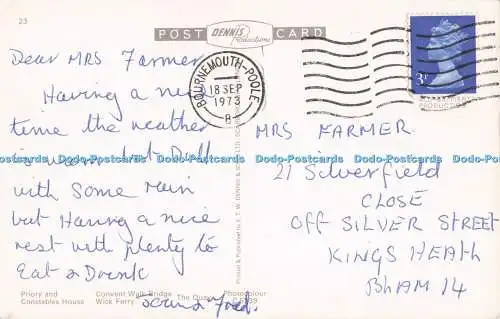 23
POST CARD
DENNIS
Productions
BOURNEMOUTH-POOLE
18 SEP
1973
B
3P
Dear MRS Farmer
Having a nice
time the weather
is warm but Dull
with some rain
but Having a nice
rest with plenty to
Eat & Drink
and Fred.
MRS FARMER.
21 Silverfield
CLOSE
OFF SILVER STREET
KINGS HEATH
BHAM 14
Dodo-Postcards Dodo-Postcards Dodo-Postcards Dodo-Postcards Dodo-Postcards
Priory and
Constables House
Convent Walk Bridge
Wick Ferry
The Quay
Photocolour